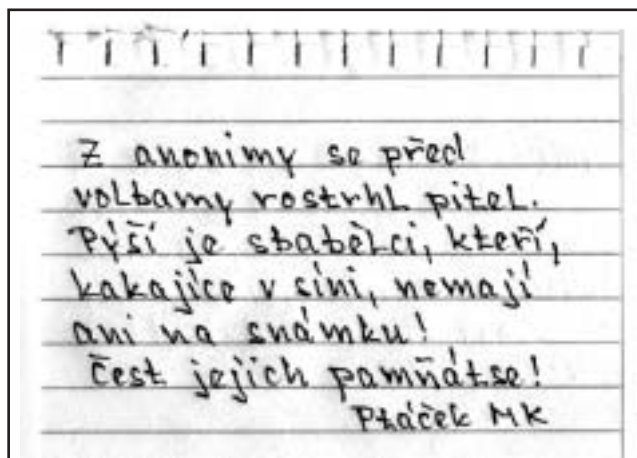 Z anonimy se před
volbamy rostrhl pitel.
Pýší je sbabělci, kteří,
kakajíce v síni, nemají
ani na snámku!
Čest jejich pamňátse!
Ptáček MK